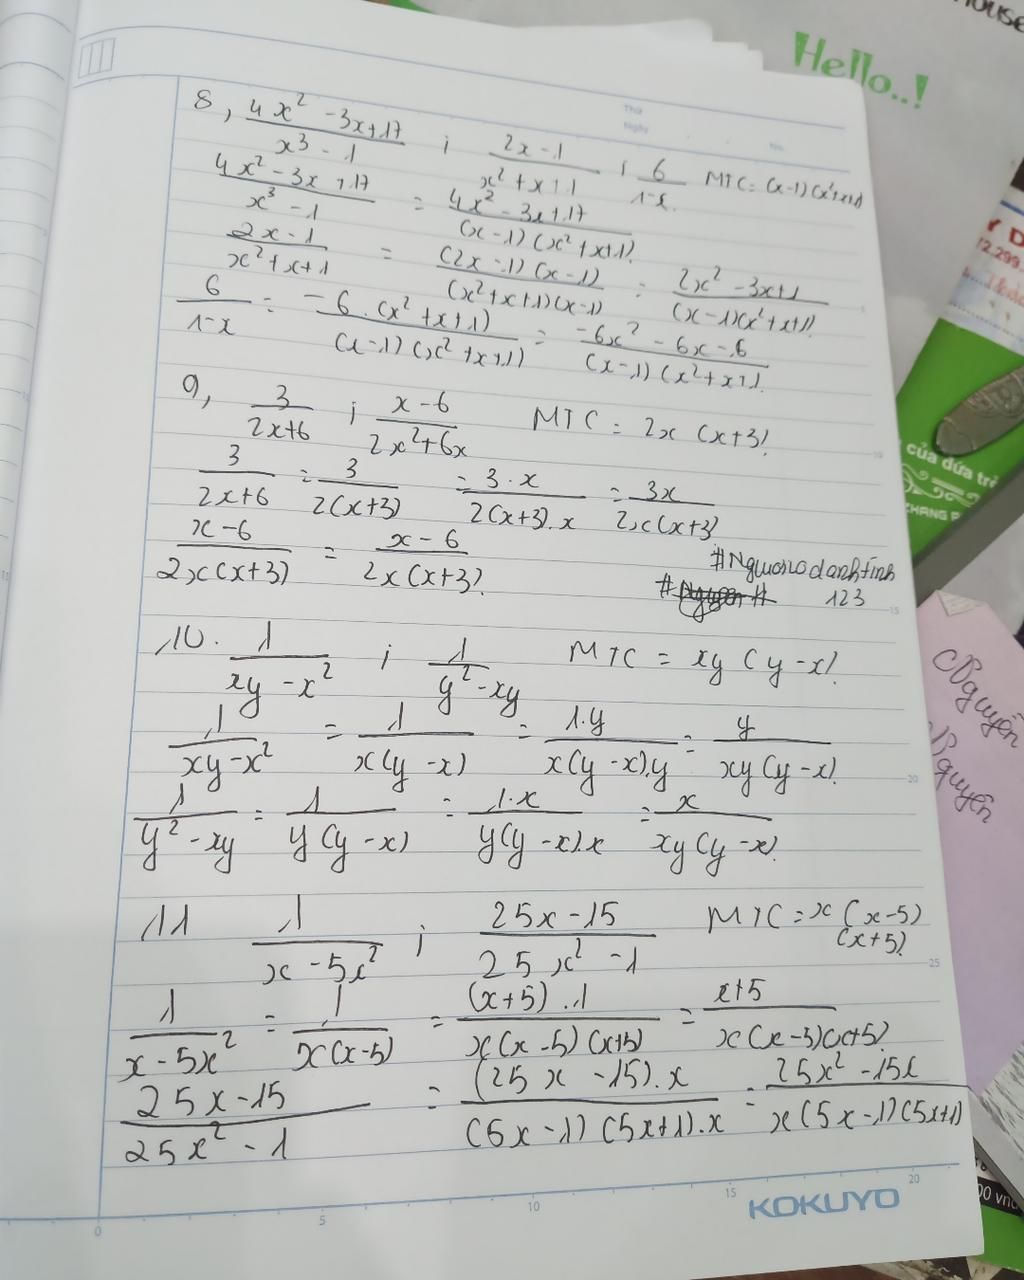 House
Hello..!
Thứ
Ngày
No.
8, (4x² - 3x + 17)/(x³ - 1) ; (2x - 1)/(x² + x + 1) ; 6/(1 - x) MTC = (x - 1)(x² + x + 1)
(4x² - 3x + 17)/(x³ - 1) = (4x² - 3x + 17)/((x - 1)(x² + x + 1))
(2x - 1)/(x² + x + 1) = ((2x - 1)(x - 1))/((x² + x + 1)(x - 1)) = (2x² - 3x + 1)/((x - 1)(x² + x + 1))
6/(1 - x) = (-6.(x² + x + 1))/((x - 1)(x² + x + 1)) = (-6x² - 6x - 6)/((x - 1)(x² + x + 1)
9, 3/(2x + 6) ; (x - 6)/(2x² + 6x) MTC = 2x (x + 3)
3/(2x + 6) = 3/(2(x + 3)) = (3.x)/(2(x + 3).x) = 3x/(2x(x + 3))
(x - 6)/(2x(x + 3)) = (x - 6)/(2x(x + 3))
#Nguoivodanhtinh
123
10. 1/(xy - x²) ; 1/(y² - xy) MTC = xy (y - x)
1/(xy - x²) = 1/(x(y - x)) = (1.y)/(x(y - x).y) = y/(xy(y - x))
1/(y² - xy) = 1/(y(y - x)) = (1.x)/(y(y - x).x) = x/(xy(y - x))
11 1/(x - 5x²) ; (25x - 15)/(25x² - 1) MTC = x (x - 5)
(x + 5)
1/(x - 5x²) = 1/(x(x - 5)) = ((x + 5).1)/(x(x - 5)(x + 5)) = (x + 5)/(x(x - 5)(x + 5))
(25x - 15)/(25x² - 1) = ((25x - 15).x)/((5x - 1)(5x + 1).x) = (25x² - 15x)/(x(5x - 1)(5x + 1))
KOKUYO
0 5 10 15 20
của đứa trẻ
Nguyễn
Nguyễn